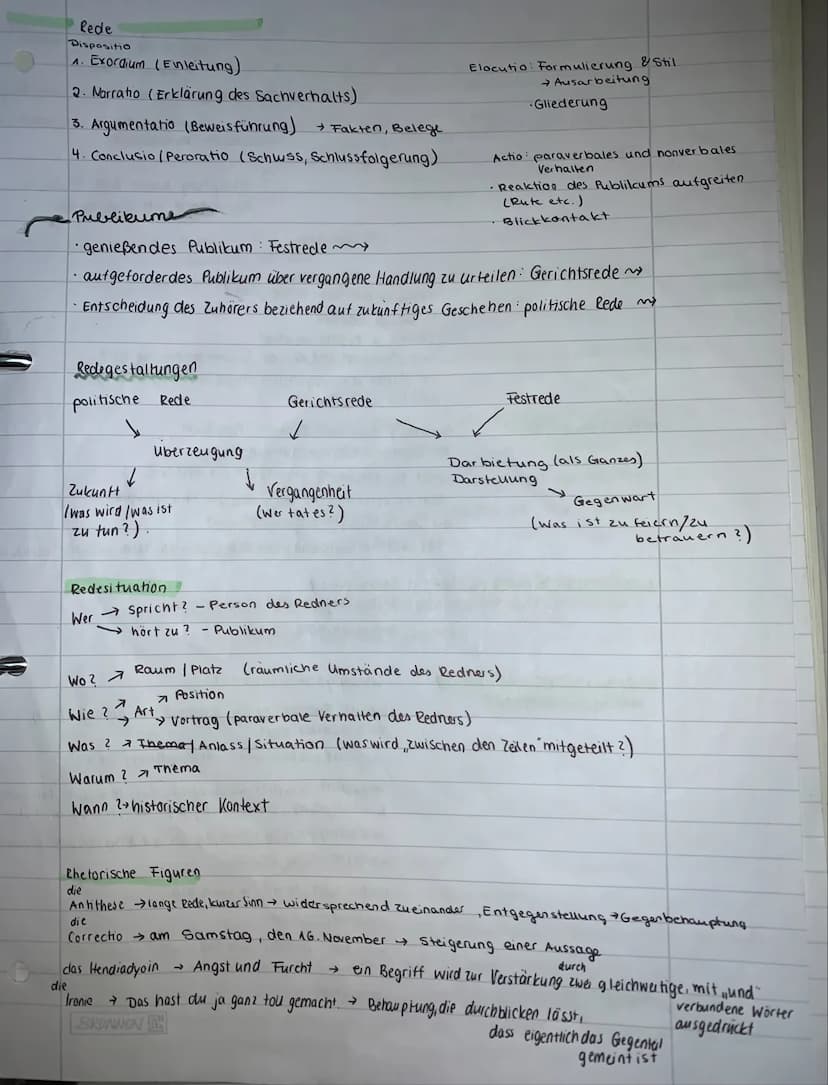 Rede
Dispositio
1. Exordium (Einleitung)
2. Narratio (Erklärung des Sachverhalts)
3. Argumentatio (Beweisführung) → Fakten, Belege
4. Conclusio/Peroratio (Schluss, Schlussfolgerung)
Elocutio: Formulierung & Stil
→ Ausarbeitung
· Gliederung
Actio: paraverbales und nonverbales
Verhalten
· Reaktion des Publikums aufgreifen
(Rufe etc.)
· Blickkontakt
Publikum
· genießendes Publikum: Festrede
· aufgeforderdes Publikum über vergangene Handlung zu urteilen: Gerichtsrede
· Entscheidung des Zuhörers beziehend auf zukünftiges Geschehen: politische Rede
Redegestaltungen
politische Rede Gerichtsrede Festrede
Überzeugung
Darbietung (als Ganzes)
Darstellung
Zukunft
(was wird/was ist
zu tun?).
Vergangenheit
(Wer tat es?)
Gegenwart
(Was ist zu feiern/zu
betrauern?)
Redesituation
Wer → spricht? - Person des Redners
→ hört zu? - Publikum
Wo? → Raum/Platz (räumliche Umstände des Redners)
Wie? → Art → Position
→ Vortrag (paraverbale Verhalten des Redners)
Was? → Thema/Anlass/Situation (was wird „zwischen den Zeilen" mitgeteilt?)
Warum? → Thema
Wann? → historischer Kontext
Rhetorische Figuren
die
Antithese → lange Rede, kurzer Sinn → widersprechend zueinander, Entgegenstellung → Gegenbehauptung
die
Correctio → am Samstag, den 16. November → Steigerung einer Aussage
das Hendiadyoin → Angst und Furcht → ein Begriff wird zur Verstärkung durch zwei gleichwertige, mit „und"
verbundene Wörter
ausgedrückt
die
Ironie → Das hast du ja ganz toll gemacht. → Behauptung, die durchblicken lässt,
dass eigentlich das Gegenteil
gemeint ist
BRUNNEN